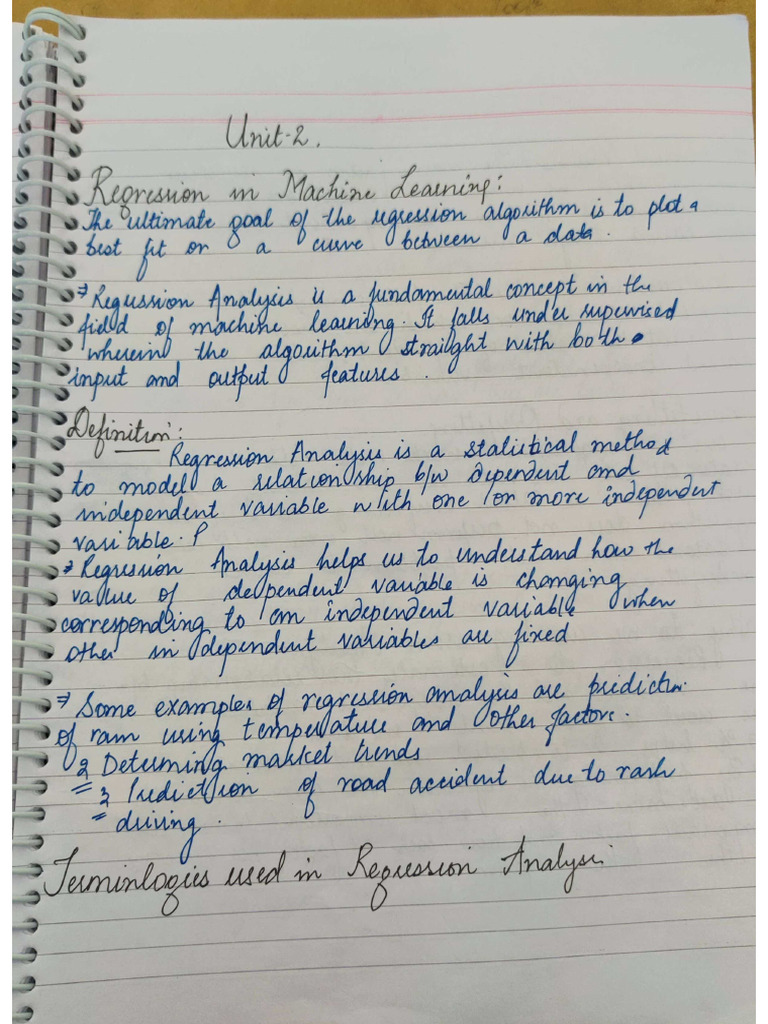 Unit-2.
Regression in Machine Learning:
The ultimate goal of the regression algorithm is to plot a
best fit or a curve between a data.
⇒ Regression Analysis is a fundamental concept in the
field of machine learning. It falls under supervised
wherein the algorithm straight with both
input and output features.
Definition:
Regression Analysis is a statistical method
to model a relationship b/w dependent and
independent variable with one or more independent
variable. P
⇒ Regression Analysis helps us to understand how the
value of dependent variable is changing
corresponding to an independent variable when
other independent variables are fixed
⇒ Some examples of regression analysis are prediction
of rain using temperature and other factors.
2 Determing market trends
= 3 Prediction of road accident due to rash
= driving.
Terminlogies used in Regression Analysis